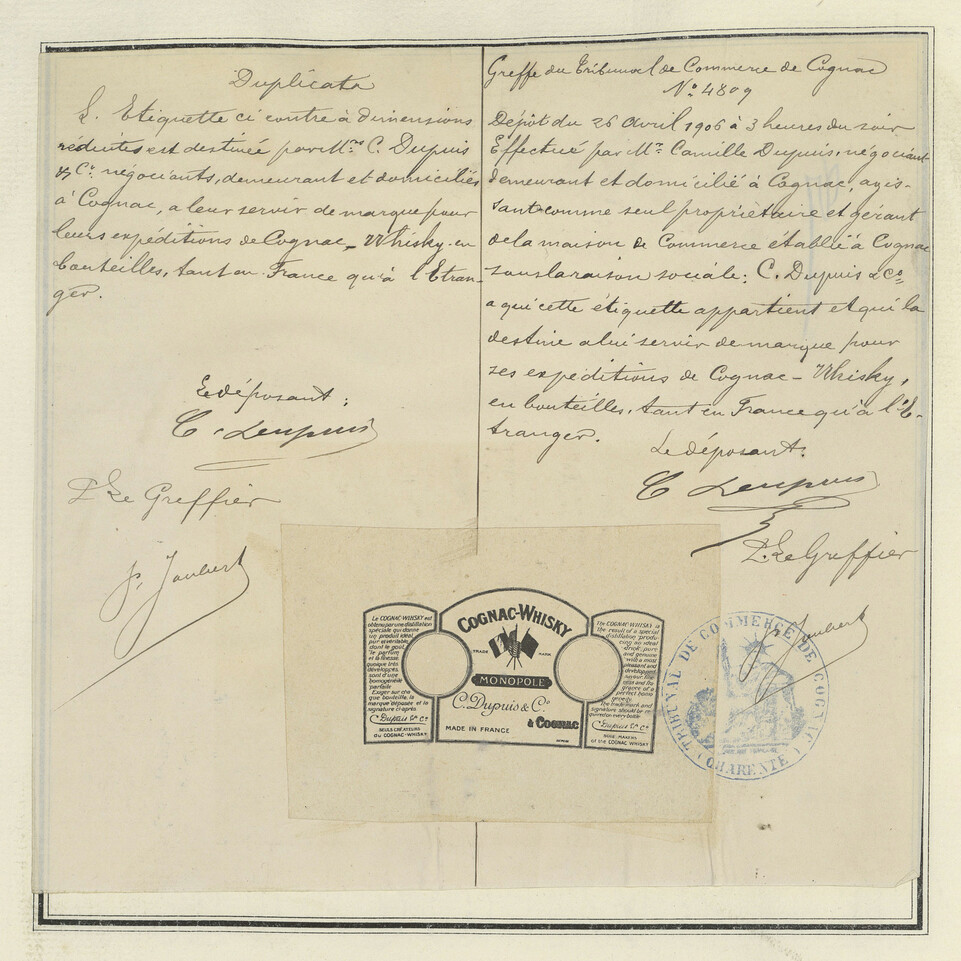 Duplicata
L'Etiquette ci contre à dimensions
réduites est destinée par Mrs C. Dupuis
& Co négociants, demeurant et domiciliés
à Cognac, a leur servir de marque pour
leurs expéditions de Cognac-Whisky en
bouteilles, tant en France qu'à l'Etran-
ger.
Le déposant:
C. Dupuis
P. Le Greffier
P. Joubert
Greffe du Tribunal de Commerce de Cognac
No 4809
Dépôt du 26 Avril 1906 à 3 heures du soir
Effectué par Mr Camille Dupuis, négociant
demeurant et domicilié à Cognac, agis-
sant comme seul propriétaire et gérant
de la maison de Commerce établie à Cognac
sous la raison sociale: C. Dupuis & Co,
a qui cette étiquette appartient et qui la
destine a lui servir de marque pour
ses expéditions de Cognac-Whisky,
en bouteilles, tant en France qu'à l'E-
tranger.
Le déposant:
C Dupuis
P. Le Greffier
P. Joubert
Le COGNAC-WHISKY est
obtenu par une distillation
spéciale qui donne
un produit idéal
pur et véritable,
dont le goût,
le parfum
et la finesse
quoique très
développés,
sont d'une
homogénéité
parfaite
Exiger sur cha
que bouteille, la
marque déposée et la
signature ci après
C. Dupuis & Co
SEULS CRÉATEURS
DU COGNAC-WHISKY
COGNAC-WHISKY
TRADE MARK
MONOPOLE
C. Dupuis & Co
à COGNAC
MADE IN FRANCE
The COGNAC-WHISKY is
The result of a special
distillation produ-
cing an ideal
drink, pure
and genuine
with a most
pleasant and
developped
savour fine
ness and fra
grance of a
perfect homo
geneity.
The trade mark and
signature should be re
quired on every bottle
C. Dupuis & Co
SOLE MAKERS
of the COGNAC WHISKY
TRIBUNAL DE COMMERCE DE COGNAC
CHARENTE